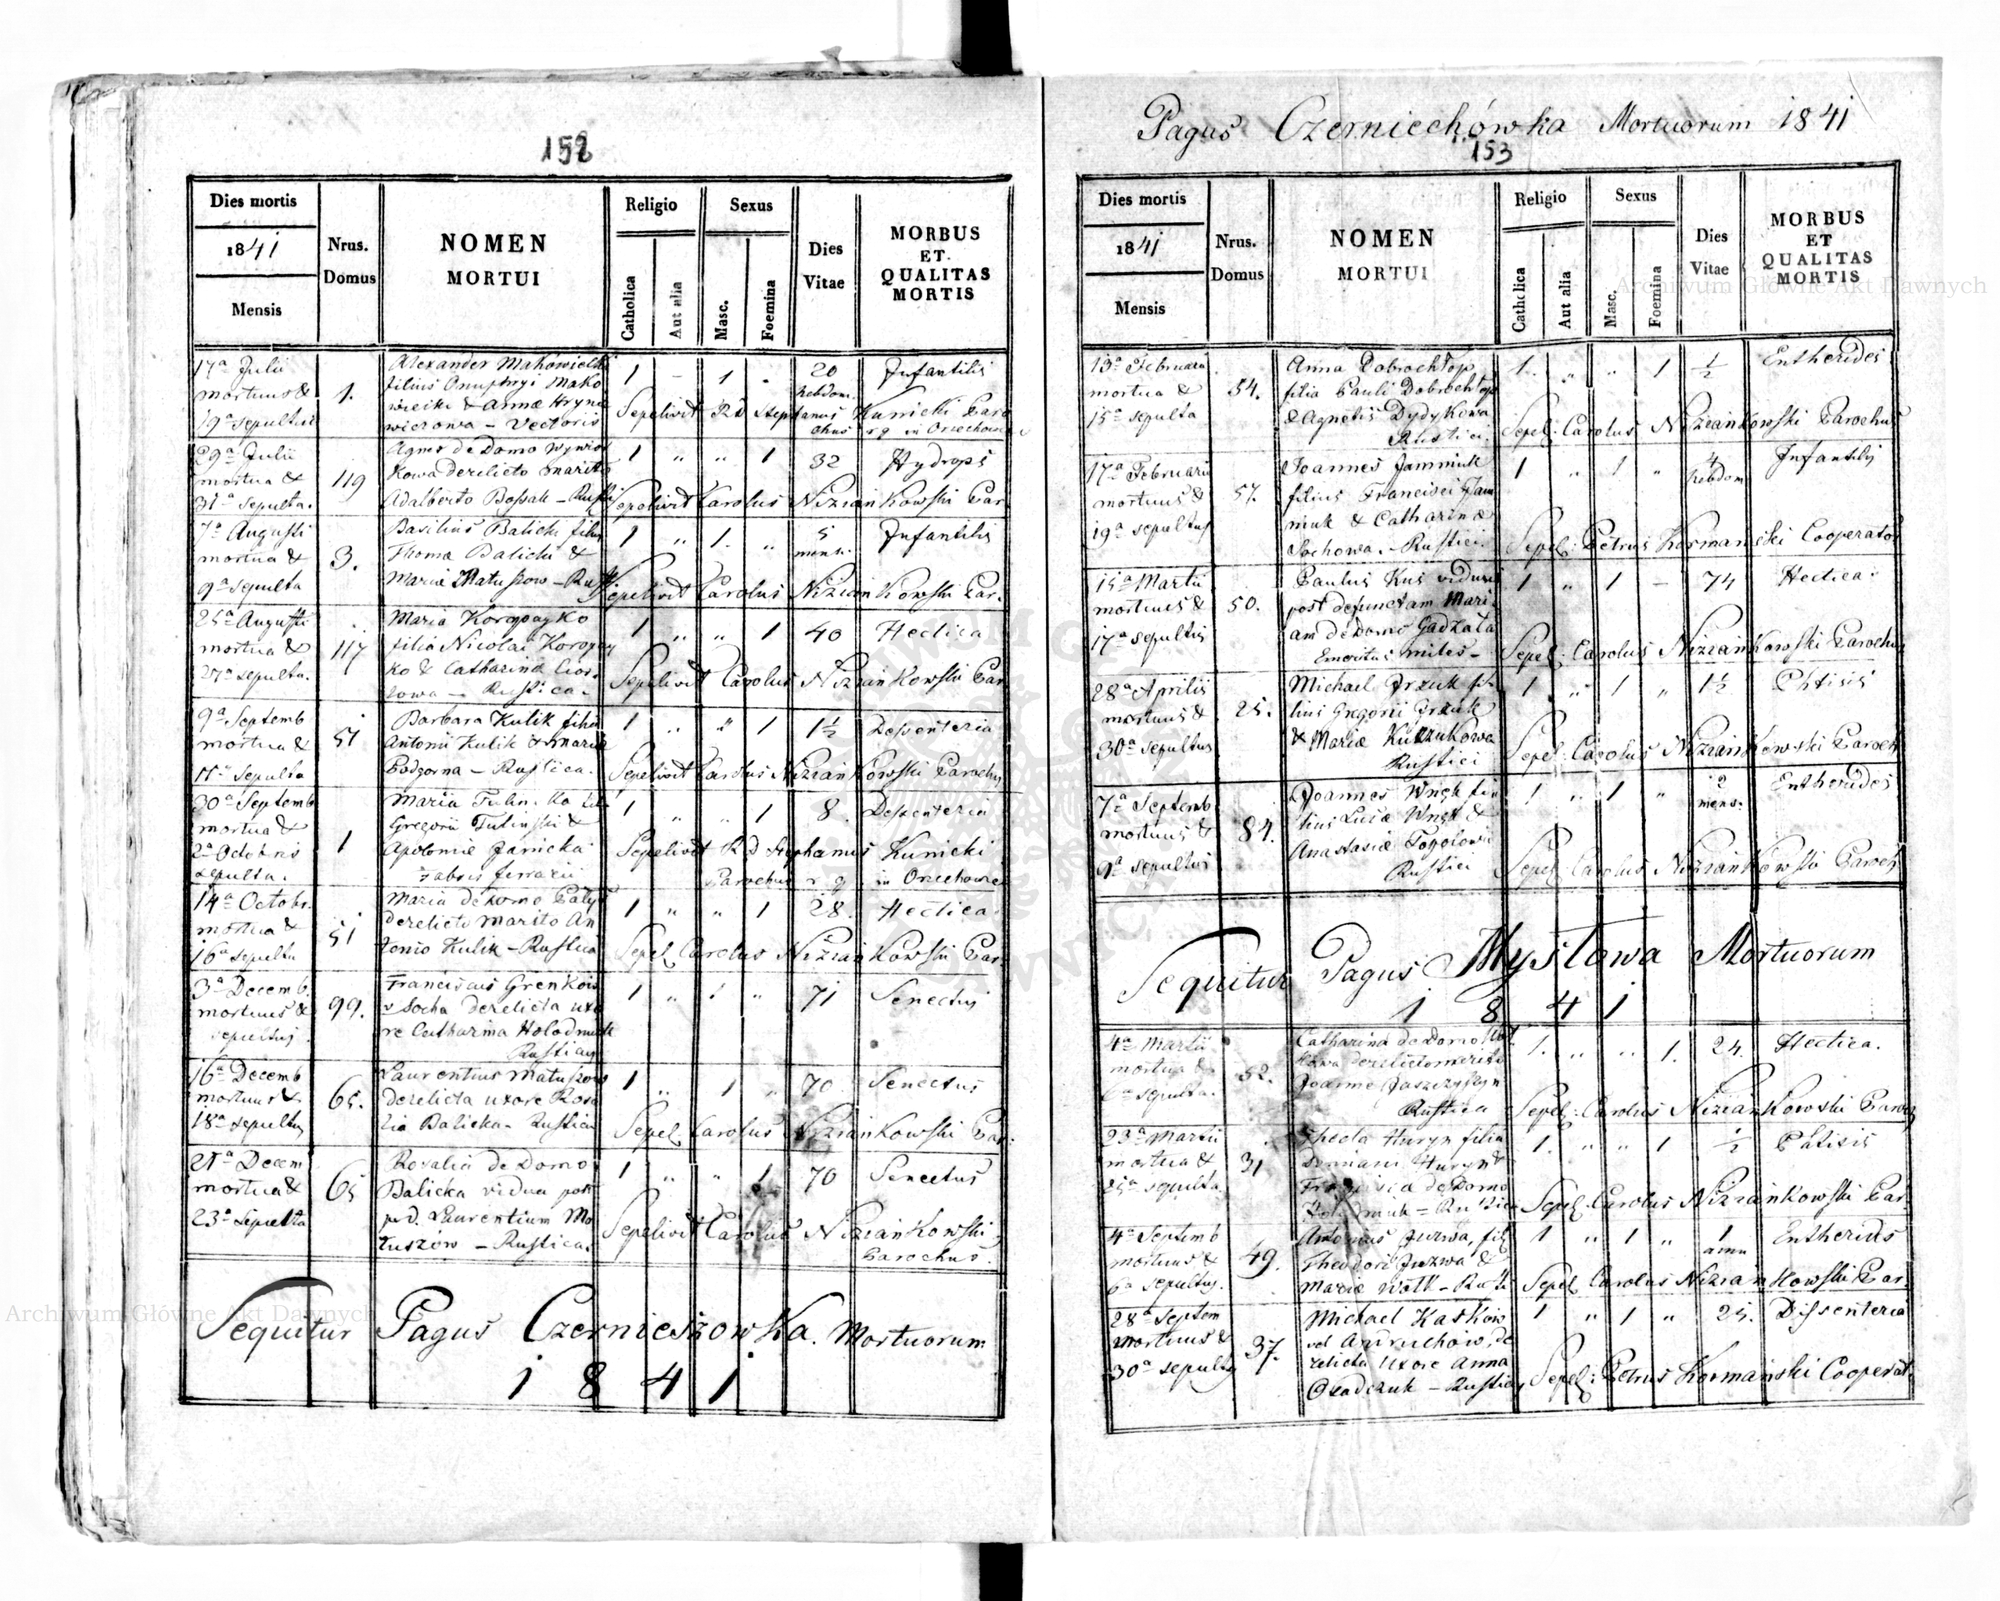 152
Dies mortis
1841
Mensis
Nrus.
Domus
NOMEN
MORTUI
Religio
Catholica
Aut alia
Sexus
Masc.
Foemina
Dies
Vitae
MORBUS
ET
QUALITAS
MORTIS
17a Julii
mortuus &
19a sepultus
1.
Alexander Makowiecki
filius Onuphryi Mako
wiecki & Annae Hryne
wiczowa – Vectoris
1 – 1 „
20
hebdom.
Infantilis
Sepelivit R d Stephanus Kunicki Paro
chus r. g. in Orzechowiec
29a Julii
mortua &
31a sepulta.
119
Agnes de Domo Wywiór
kowa derelicto marito
Adalberto Bossak – Rusti
1 „ „ 1 32 Hydrops
Sepelivit Carolus Niziankowski Par.
7a Augusti
mortua &
9a sepulta
3.
Basilius Balicki filius
Thoma Balicki &
Maria Matuszow – Rusti
1 „ 1. „
5
mens.
Infantilis
Sepelivit Carolus Niziankowski Par.
25a Augusti
mortua &
27a sepulta.
117
Maria Koropayko
filia Nicolai Koropay
ko & Catharina
sowa – Rustica.
1 „ „ 1 40 Hectica
Sepelivit Carolus Niziankowski Par
9a Septemb
mortua &
11a sepulta
51
Barbara Kulik filia
Antonii Kulik & Maria
Podgorna – Rustica.
1 „ „ 1 1½ Dessenteria
Sepelivit Carolus Niziankowski Parochus
30a Septemb
mortua &
2a Octobris
sepulta.
1
Maria
Gregorii Tulinski &
Apolonie Janicka
Fabris ferrarii
1 „ „ 1 8. Dessenteria
Sepelivit R d Stephanus Kunicki
Parochus r. g. in Orzechowiec
14a Octobr.
mortua &
16a sepulta
51
Maria de Domo
derelicto Marito An
tonio Kulik – Rustica
1 „ „ 1 28. Hectica.
Sepel. Carolus Niziankowski Par.
3a Decemb
mortuus &
sepultus
99.
Franciscus Grenkow
v Socha derelicta uxo
re Catharina Holodniuk
Rusticus
1 „ 1 „ 71 Senectus
16a Decemb
mortuus &
18a sepultus
65.
Laurentius Matuszow
derelicta uxore Rosa
lia Balicka – Rusticus
1 „ 1 „ 70 Senectus
Sepel. Carolus Niziankowski Par.
21a Decem
mortua &
23a Sepulta
65
Rosalia de Domo
Balicka vidua post
p. d. Laurentium Ma
tuszów – Rustica.
1 „ „ 1 70 Senectus
Sepelivit Carolus Niziankowski
Parochus.
Sequitur Pagus Czernieszowka. Mortuorum
1 8 4 1
Pagus Czerniechówka Mortuorum 1841
153
Dies mortis
1841
Mensis
Nrus.
Domus
NOMEN
MORTUI
Religio
Catholica
Aut alia
Sexus
Masc.
Foemina
Dies
Vitae
MORBUS
ET
QUALITAS
MORTIS
13a Februarii
mortua &
15a sepulta
54.
Anna Dobrochłop
filia Pauli Dobrochłop
& Agnetis Dydykowa
Rustici.
1. „ „ 1 ½ Entherides
Sepel: Carolus Niziankowski Parochus
17a Februarii
mortuus &
19a sepultus
57.
Joannes Jamniuk
filius Francisci Jam
niuk & Catharina
Sochowa. – Rustici.
1 „ 1 „
4
hebdom
Infantilis
Sepel: Petrus Kormański Cooperator
15a Martii
mortuus &
17a sepultus
50.
Paulus Kus viduus
post defunctam Mari
am de Domo Gadzala
Emeritus miles –
1 „ 1 – 74 Hectica.
Sepel: Carolus Niziankowski Parochus
28a Aprilis
mortuus &
30a sepultus
25.
Michael Grzuk fi
lius Gregorii Grzuk
& Maria Kuczukowa
Rustici
1 „ 1 „ 1½ Phtisis
Sepel: Carolus Niziankowski Paroch
7a Septemb
mortuus &
9a sepultus
84.
Joannes Wnęk fi
lius Luca Wnęk &
Anastasia Topolowi
Rustici
1 „ 1 „
2
mens.
Entherides
Sepel. Carolus Niziankowski Paroch
Sequitur Pagus Mysłowa Mortuorum
1 8 4 1
4a Martii
mortua &
6a sepulta.
52.
Catharina de Domo
kowa derelicto marito
Joanne Jaszczyszyn
Rustica
1. „ „ 1. 24. Hectica.
Sepel: Carolus Niziankowski Paroch
23a Martii
mortua &
25a sepulta
31
Thecla Huryn filia
Damiani Huryn &
de Domo
1. „ „ 1 ½ Phtisis
Sepel. Carolus Niziankowski Par.
4a Septemb
mortuus &
6a sepultus.
49.
Antonius Juzwa, fil
Theodori Juzwa &
Maria Wołk – Rusti
1 „ 1 „
1
ann
Entherides
Sepel Carolus Niziankowski Par.
28a Septem
mortuus &
30a sepultus
37.
Michael Kaskow
vel Andruchów, de
relicta Uxore Anna
Osadczuk – Rusticus
1 „ 1 „ 25. Dissenteria
Sepel: Petrus Kormański Cooperat.
Archiwum Główne Akt Dawnych
Archiwum Główne Akt Dawnych